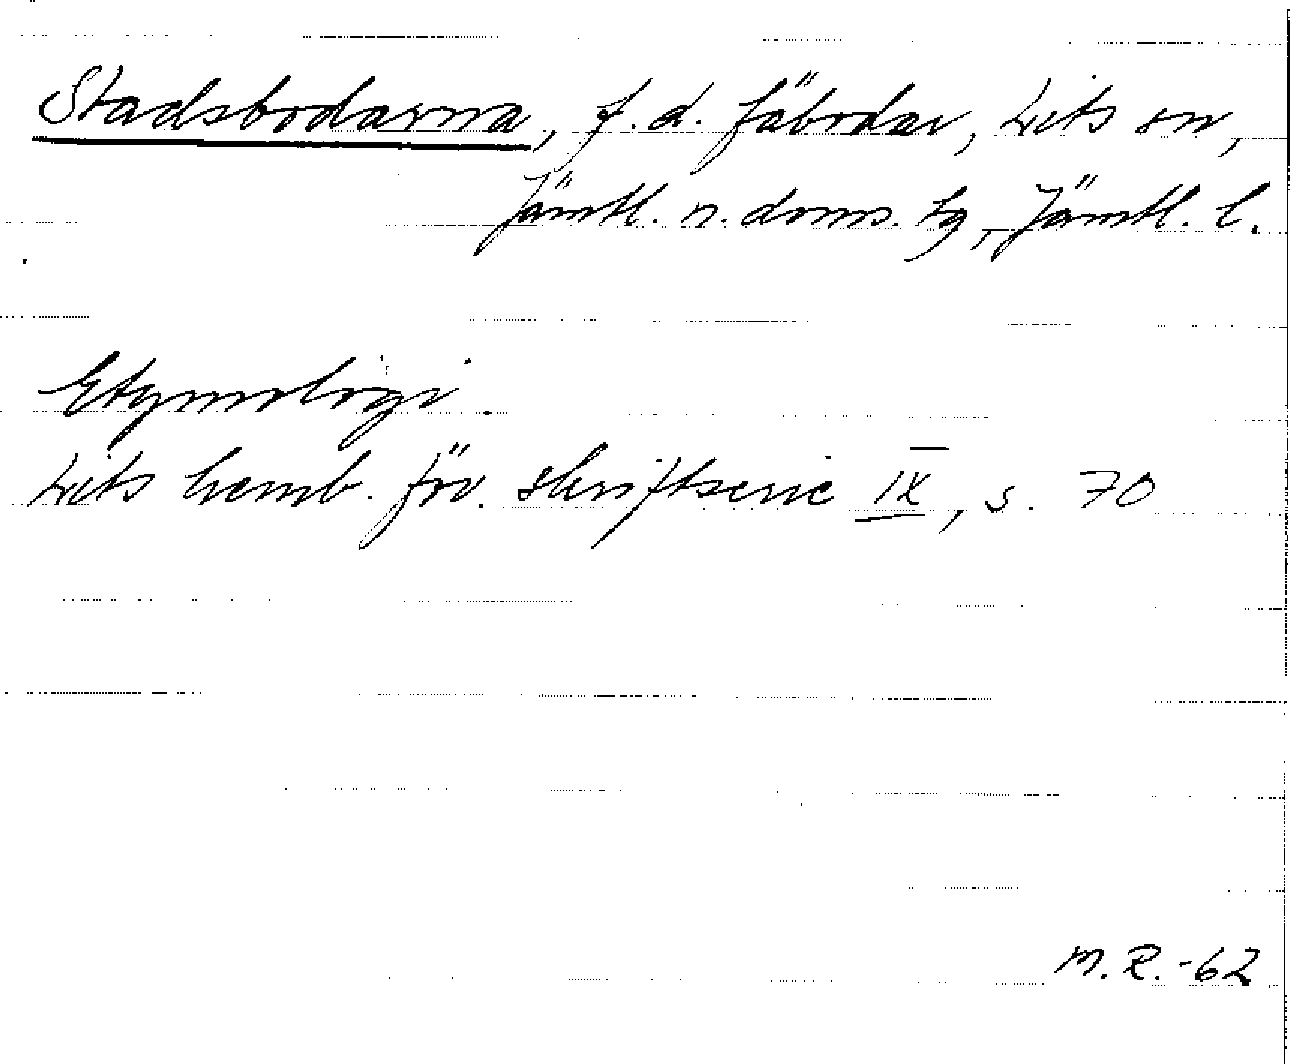 Stadsbodarna, f.d. fäbodar, Lits sn,
Jämtl. n. doms. tg, Jämtl. l.
Etymologi.
Lits hemb. för. skriftserie IX, s. 70
M.R.-62